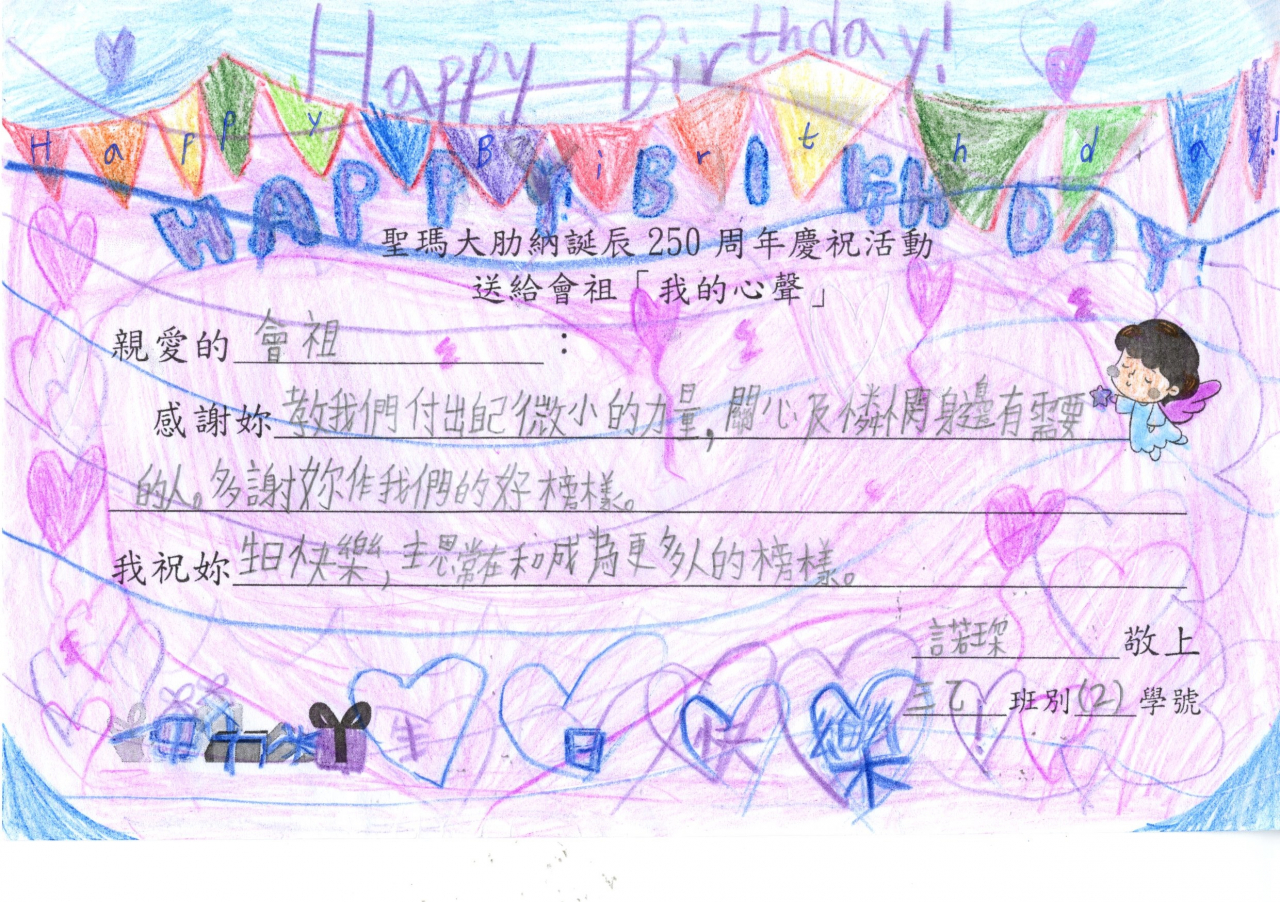 Happy Birthday!
Happy Birthday!
HAPPY! BRITHDAY!
聖瑪大肋納誕辰 250 周年慶祝活動
送給會祖「我的心聲」
親愛的 會祖 :
感謝妳 教我們付出自己微小的力量,關心及憐憫身邊有需要
的人。多謝妳作我們的好榜樣。
我祝妳 生日快樂,主恩常在和成為更多人的榜樣。
諾琛 敬上
三乙 班別 (2) 學號
生日快樂!